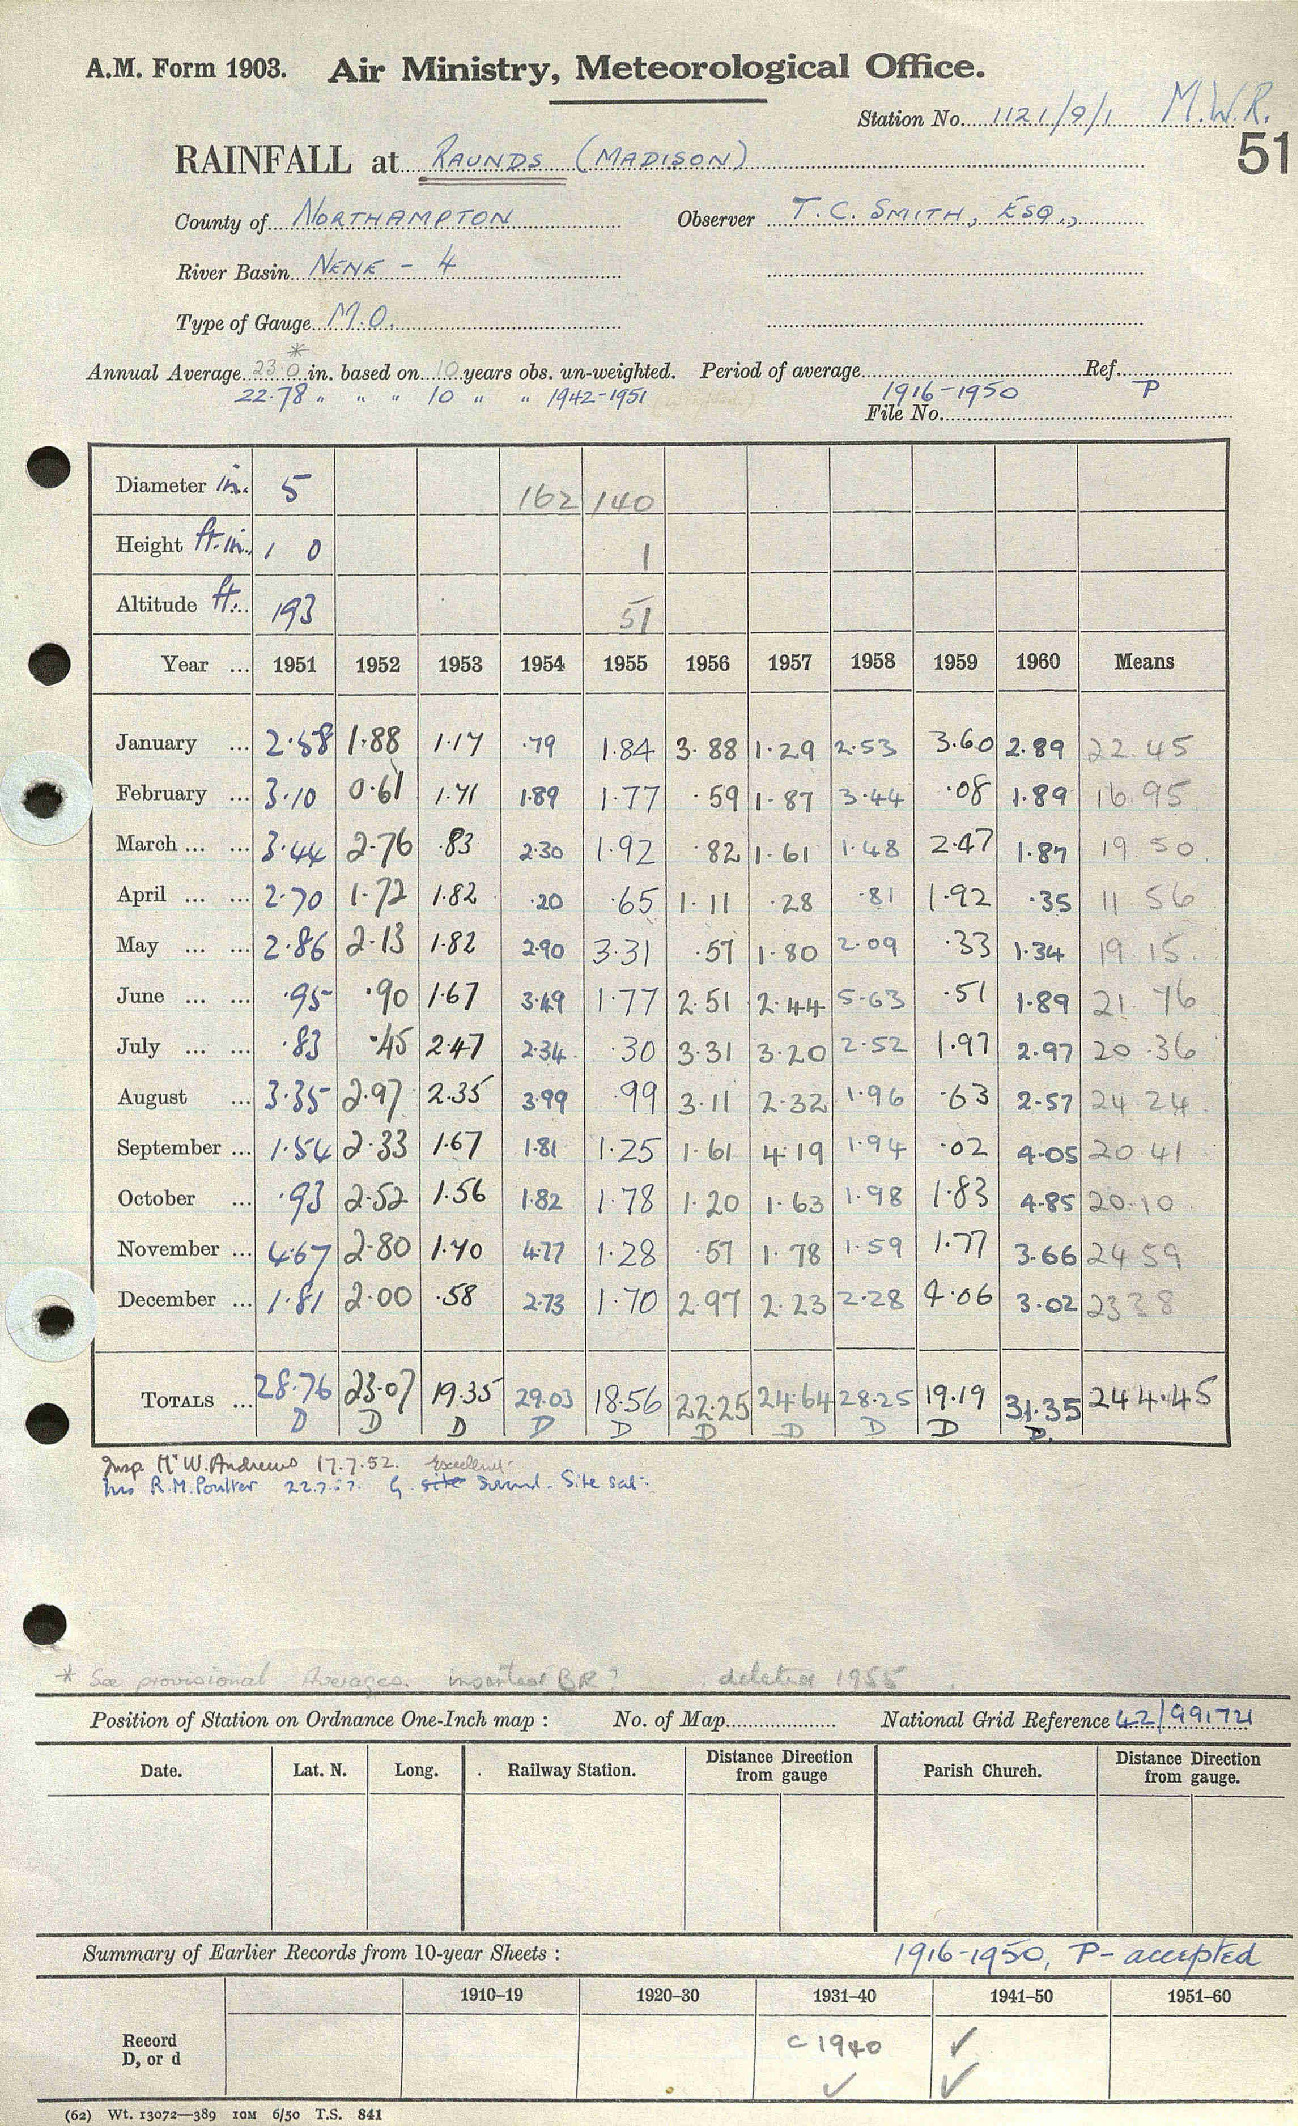 A.M. Form 1903. Air Ministry, Meteorological Office.
Station No. 1121/9/1 M.W.R.
51
RAINFALL at RAUNDS (MADISON)
County of NORTHAMPTON Observer T.C. SMITH, ESQ.,
River Basin NENE - 4
Type of Gauge M.O.
*
Annual Average 23.0 in. based on 10 years obs. un-weighted. Period of average Ref.
22.78 " " " 10 " " 1942-1951 1916-1950 P
File No.
Diameter in. 5 162 140
Height ft. in. 1 0 1
Altitude ft. 193 51
Year ... 1951 1952 1953 1954 1955 1956 1957 1958 1959 1960 Means
January ... 2.58 1.88 1.17 .79 1.84 3.88 1.29 2.53 3.60 2.89 22.45
February ... 3.10 0.61 1.71 1.89 1.77 .59 1.87 3.44 .08 1.89 16.95
March ... ... 3.44 2.76 .83 2.30 1.92 .82 1.61 1.48 2.47 1.87 19.50
April ... ... 2.70 1.72 1.82 .20 .65 1.11 .28 .81 1.92 .35 11.56
May ... ... 2.86 2.13 1.82 2.90 3.31 .57 1.80 2.09 .33 1.34 19.15
June ... ... .95 .90 1.67 3.49 1.77 2.51 2.44 5.63 .51 1.89 21.76
July ... ... .83 .45 2.47 2.34 .30 3.31 3.20 2.52 1.97 2.97 20.36
August ... 3.35 2.97 2.35 3.99 .99 3.11 2.32 1.96 .63 2.57 24.24
September ... 1.54 2.33 1.67 1.81 1.25 1.61 4.19 1.94 .02 4.05 20.41
October ... .93 2.52 1.56 1.82 1.78 1.20 1.63 1.98 1.83 4.85 20.10
November ... 4.67 2.80 1.70 4.77 1.28 .57 1.78 1.59 1.77 3.66 24.59
December ... 1.81 2.00 .58 2.73 1.70 2.97 2.23 2.28 4.06 3.02 23.38
TOTALS ... 28.76 23.07 19.35 29.03 18.56 22.25 24.64 28.25 19.19 31.35 244.45
D D D D D D D D D D.
Insp. Mr W. Andrews 17.7.52. Excellent.
Ins R.M. Poulter G. site Sound. Site sat.
* See provisional Averages. inserted BR? deleted 1955
Position of Station on Ordnance One-Inch map : No. of Map National Grid Reference 42/991721
Date. Lat. N. Long. Railway Station. Distance Direction from gauge Parish Church. Distance Direction from gauge.
Summary of Earlier Records from 10-year Sheets : 1916-1950, P-accepted
1910–19 1920–30 1931–40 1941–50 1951–60
Record D, or d c 1940 ✓
✓ ✓
(62) Wt. 13072—389 10M 6/50 T.S. 841